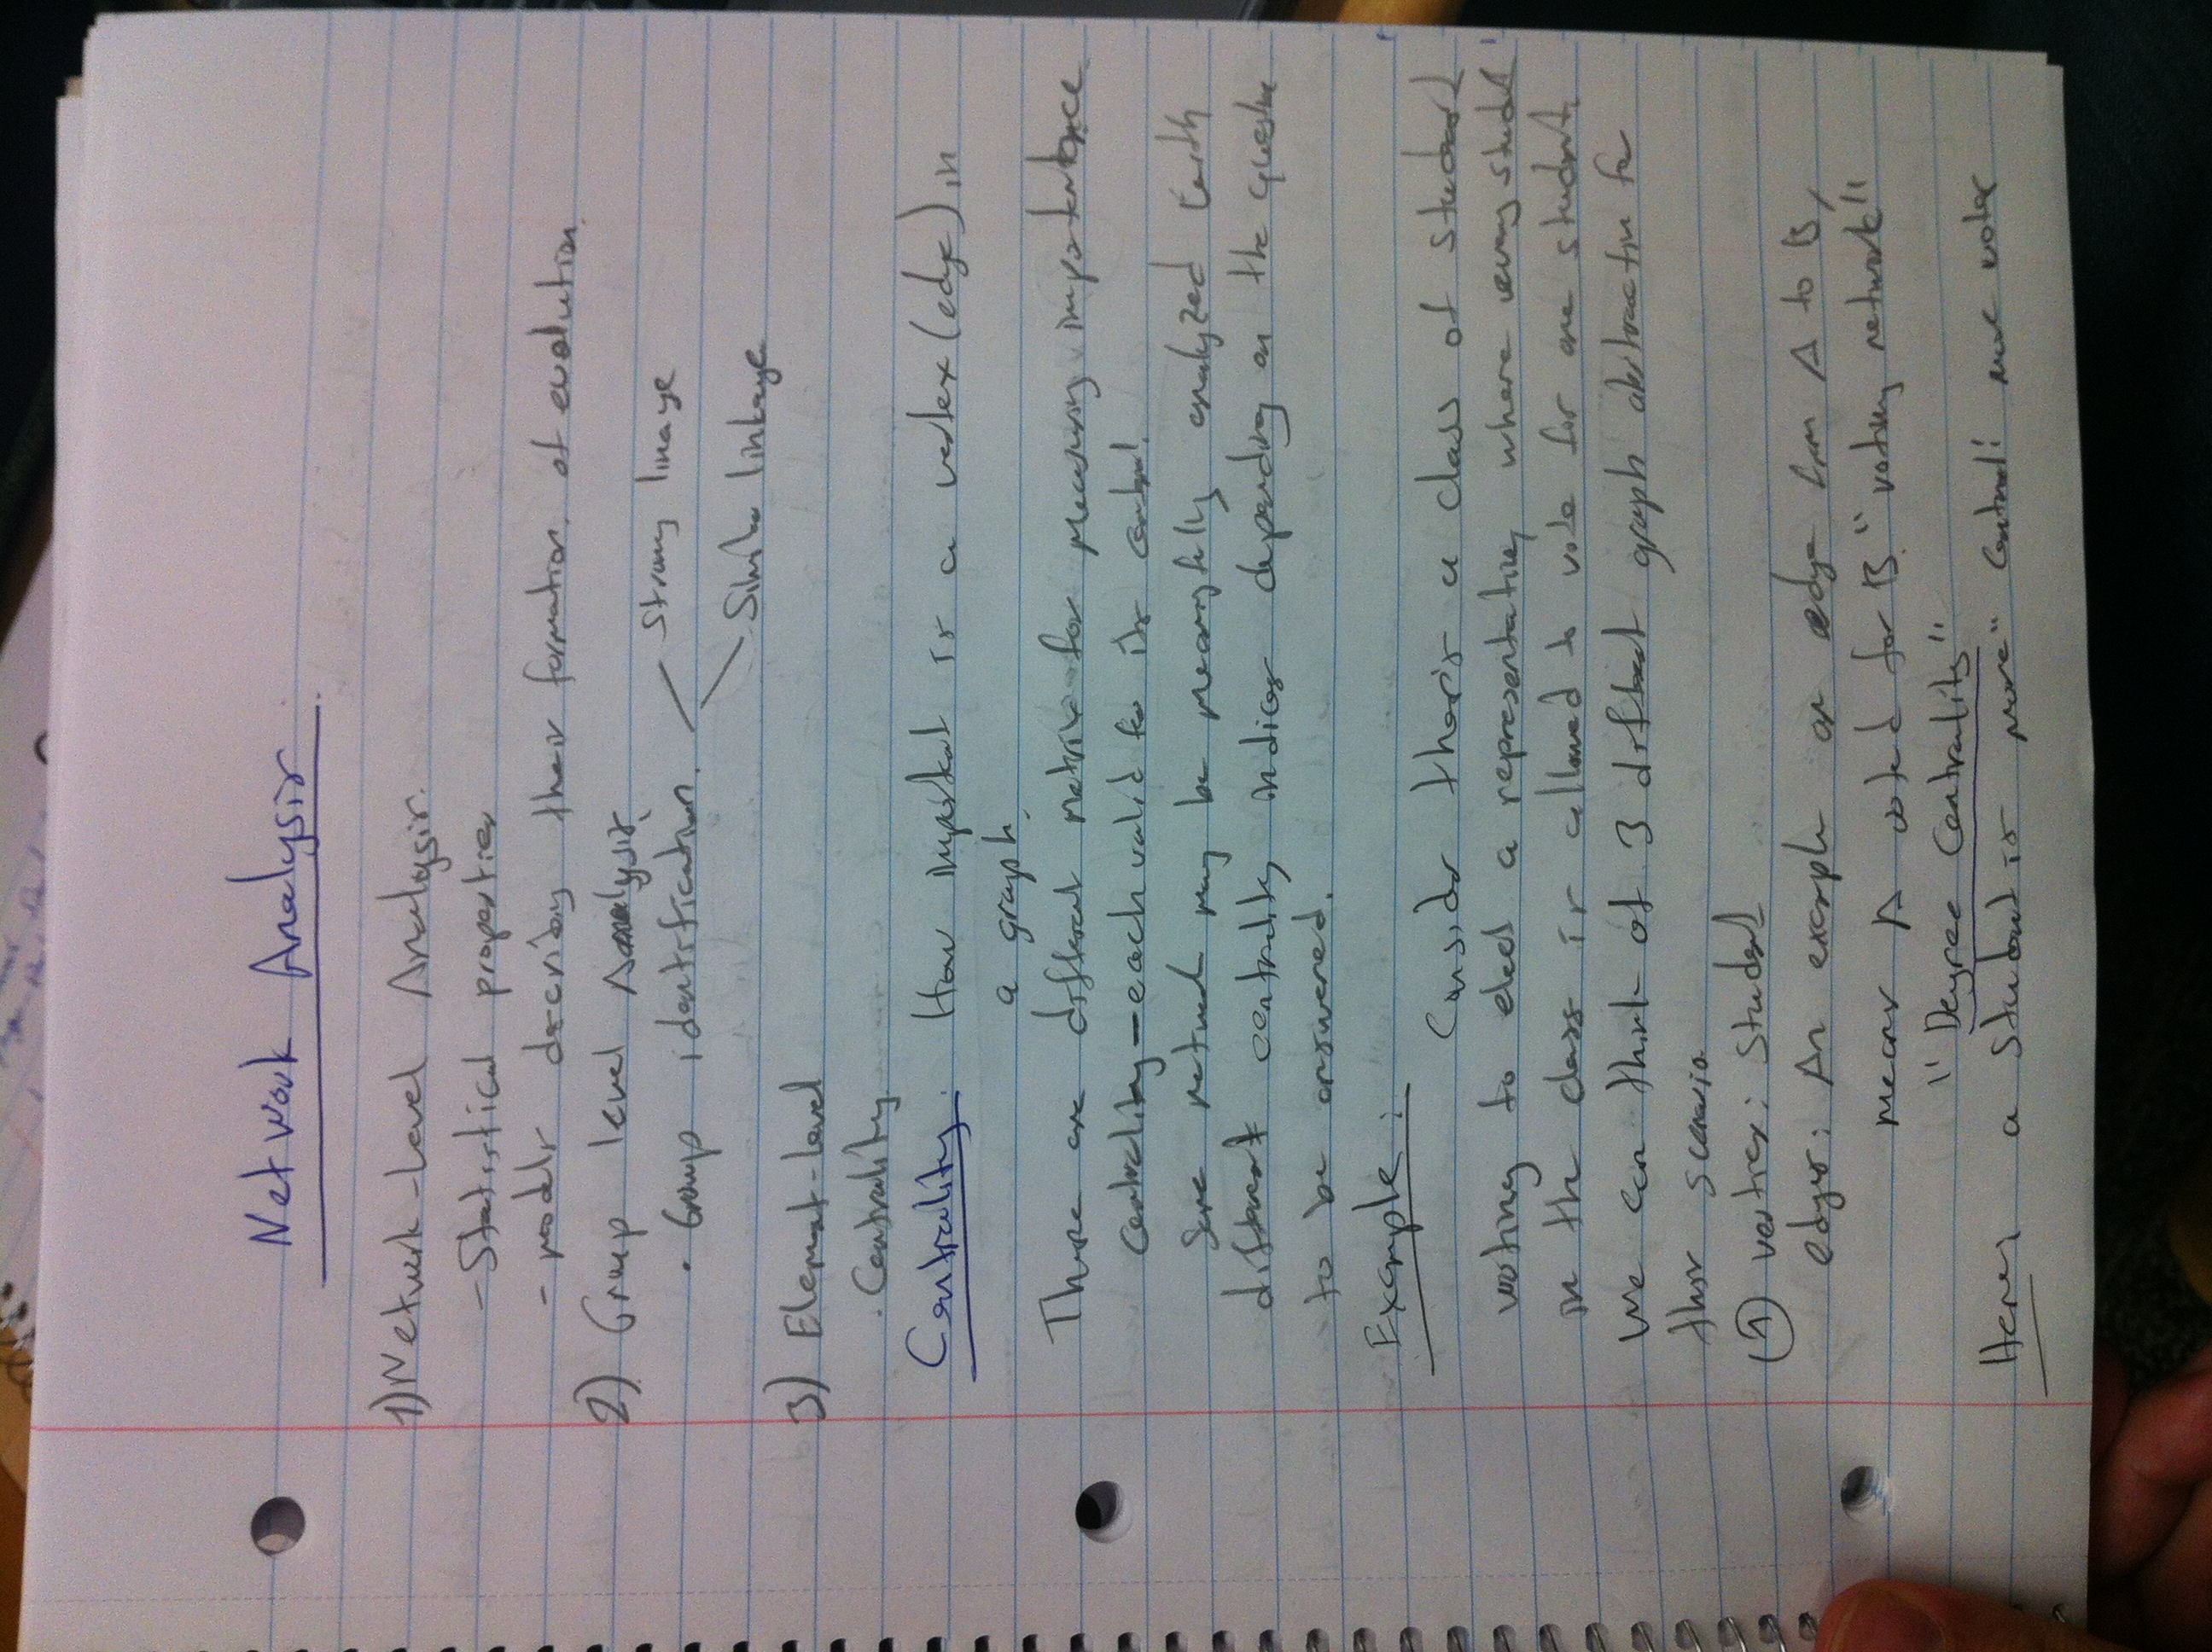 Network Analysis
1) Network-Level Analysis.
- Statistical properties
- models describing their formation, of evolution.
2) Group level Analysis
. Group identification. Strong linage
Similar linkage
3) Element-Level
. Centrality
Centrality: How important is a vertex (edge) in
a graph.
There are different metrics for measuring importance
centrality - each valid in its context.
Same network may be meaningfully analyzed with
different centrality indices depending on the question
to be answered.
Example: Consider there is a class of student
voting to elect a representative, where every student
in the class is allowed to vote for one student.
We can think of 3 different graph abstraction for
this scenario
1 vertex: student
edges: An example an edge from A to B,
means A voted for B. "voting network"
"Degree Centrality"
Here, a student is more "central" more votes